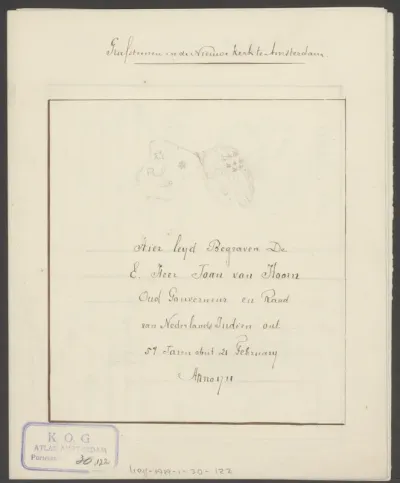 Grafsteenen in de Nieuwe Kerk te Amsterdam
Hier leyd Begraven De
E. Heer Joan van Hoorn
Oud Gouverneur en Raad
van Nederlands Indien out
57 Jaren obiit 21 February
Anno 1711
K.O.G
ATLAS AMSTERDAM
20,122
kog-1919-1-20-122